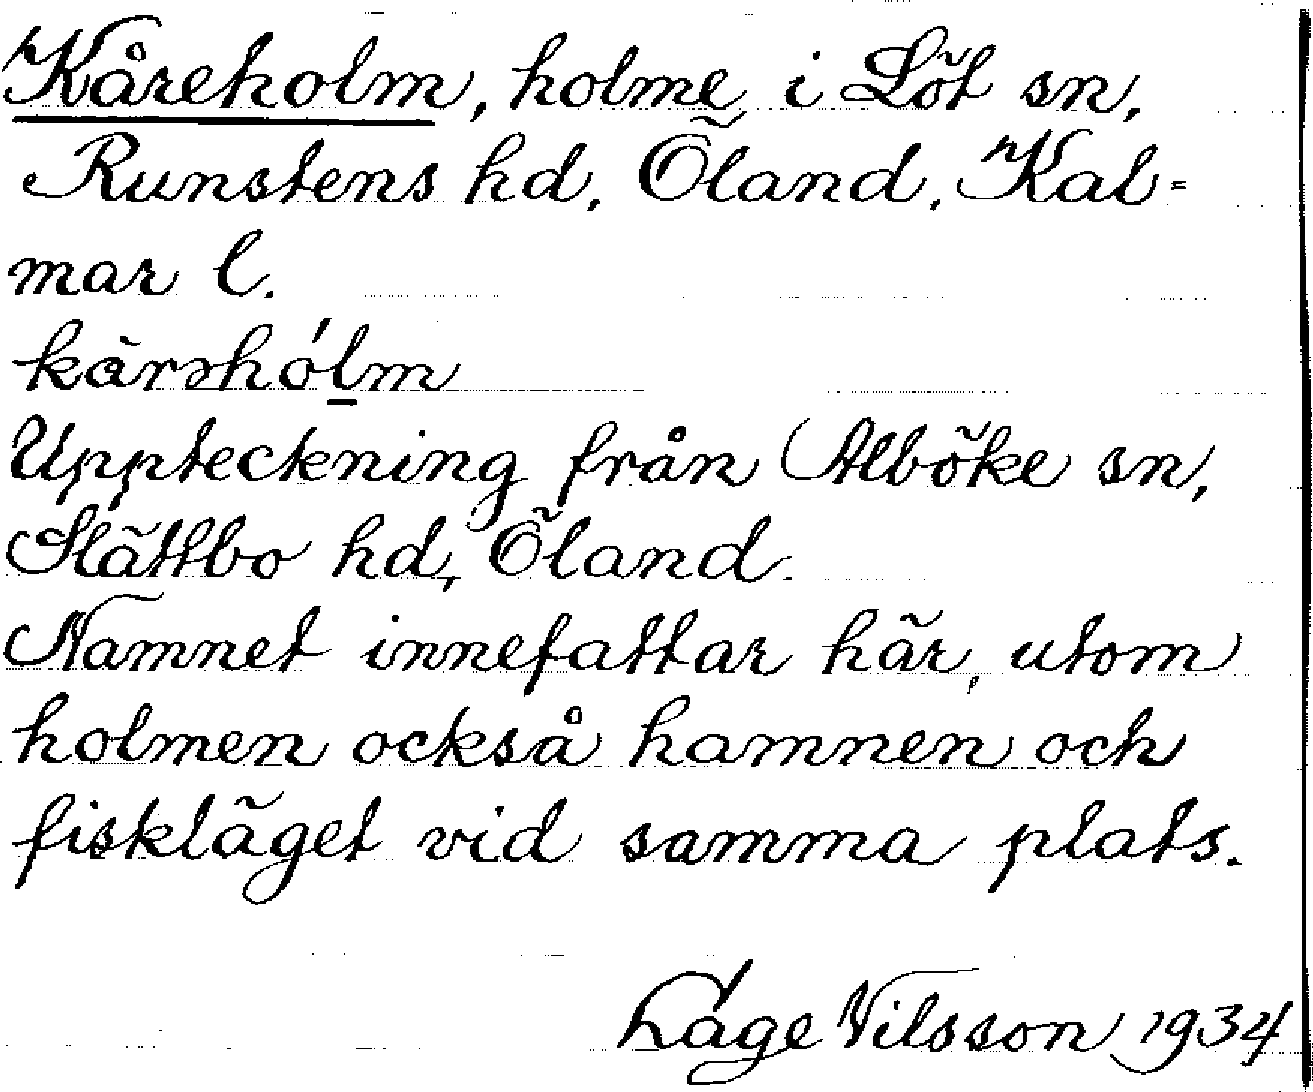 Kåreholm, holme i Löt sn,
Runstens hd, Öland, Kal-
mar l.
kärshó̱lm
Uppteckning från Alböke sn,
Slättbo hd, Öland.
Namnet innefattar här, utom
holmen också hamnen och
fiskläget vid samma plats.
Låge Nilsson 1934